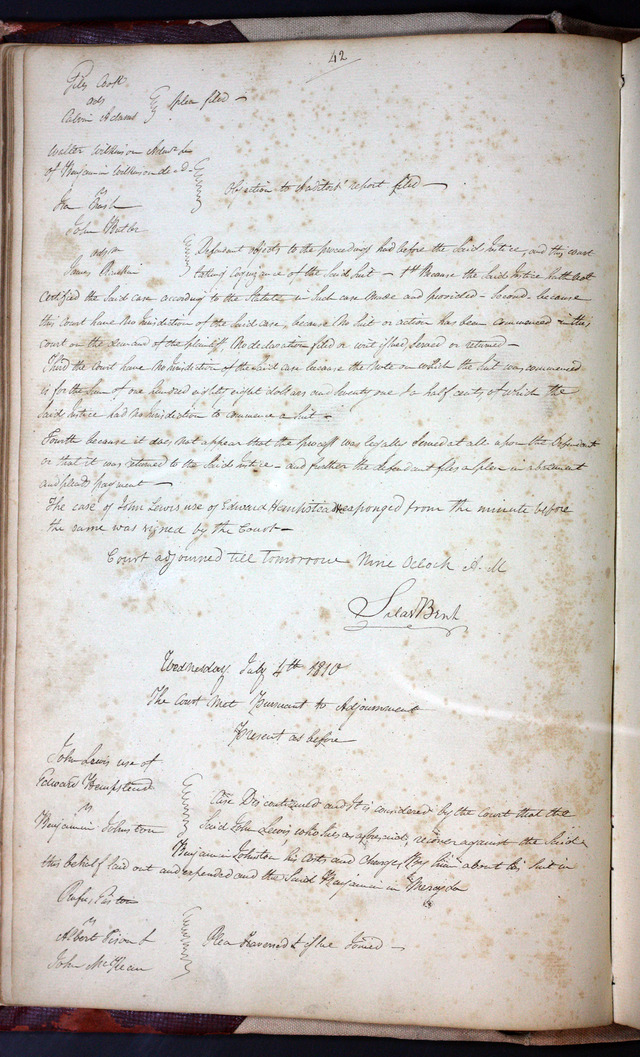 42
Cook
ads
Calvin Adams } plea filed —
Walter Wilkinson Admr de
of Benjamin Wilkinson decd —
Objection to Auditors report filed —
Ira Nash
John Butler
ads
James Rankin
Defendant objects to the proceedings had before the Said Justice, and this court
taking Cognizance of the Said Suit — 1st Because the Said Justice hath not
Certified the Said case according to the Statute in Such case Made and provided — Second because
this Court have No Jurisdiction of the Said case, because No Suit or action has been commenced in this
court on the demand of the plaintiff, No declaration filed or writ issued, Served or returned —
Third the court have No Jurisdiction of the Said case because the Note on which the Suit was commenced
is for the Sum of one hundred eighty eight dollars and Seventy one & a half cents of which the
Said Justice had no Jurisdiction to commence a Suit —
Fourth because it does not appear that the process was legally Served at all upon the Defendant
or that it was returned to the Said Justice — and further the defendant files a plea in abatement
and pleads payment —
The case of John Lewis use of Edward Hempstead exponged from the minute before
the same was signed by the Court —
Court adjourned till tomorrow Nine Oclock A.M
Silas Bent
Wednesday July 4th 1810
The Court Met Pursuant to Adjournment
Present as before
John Lewis use of
Edward Hempstead
vs
Benjamin Johnston
Case Discontinued and It is considered by the Court that the
Said John Lewis, who Sues as aforesaid, recover against the Said
Benjamin Johnston his Costs and Charges by him about his Suit in
this behalf laid out and expended and the Said Benjamin in Mercy &c
Rufus Easton
vs
Albert Tison &
John McClean
Plea traversed & issue Joined —